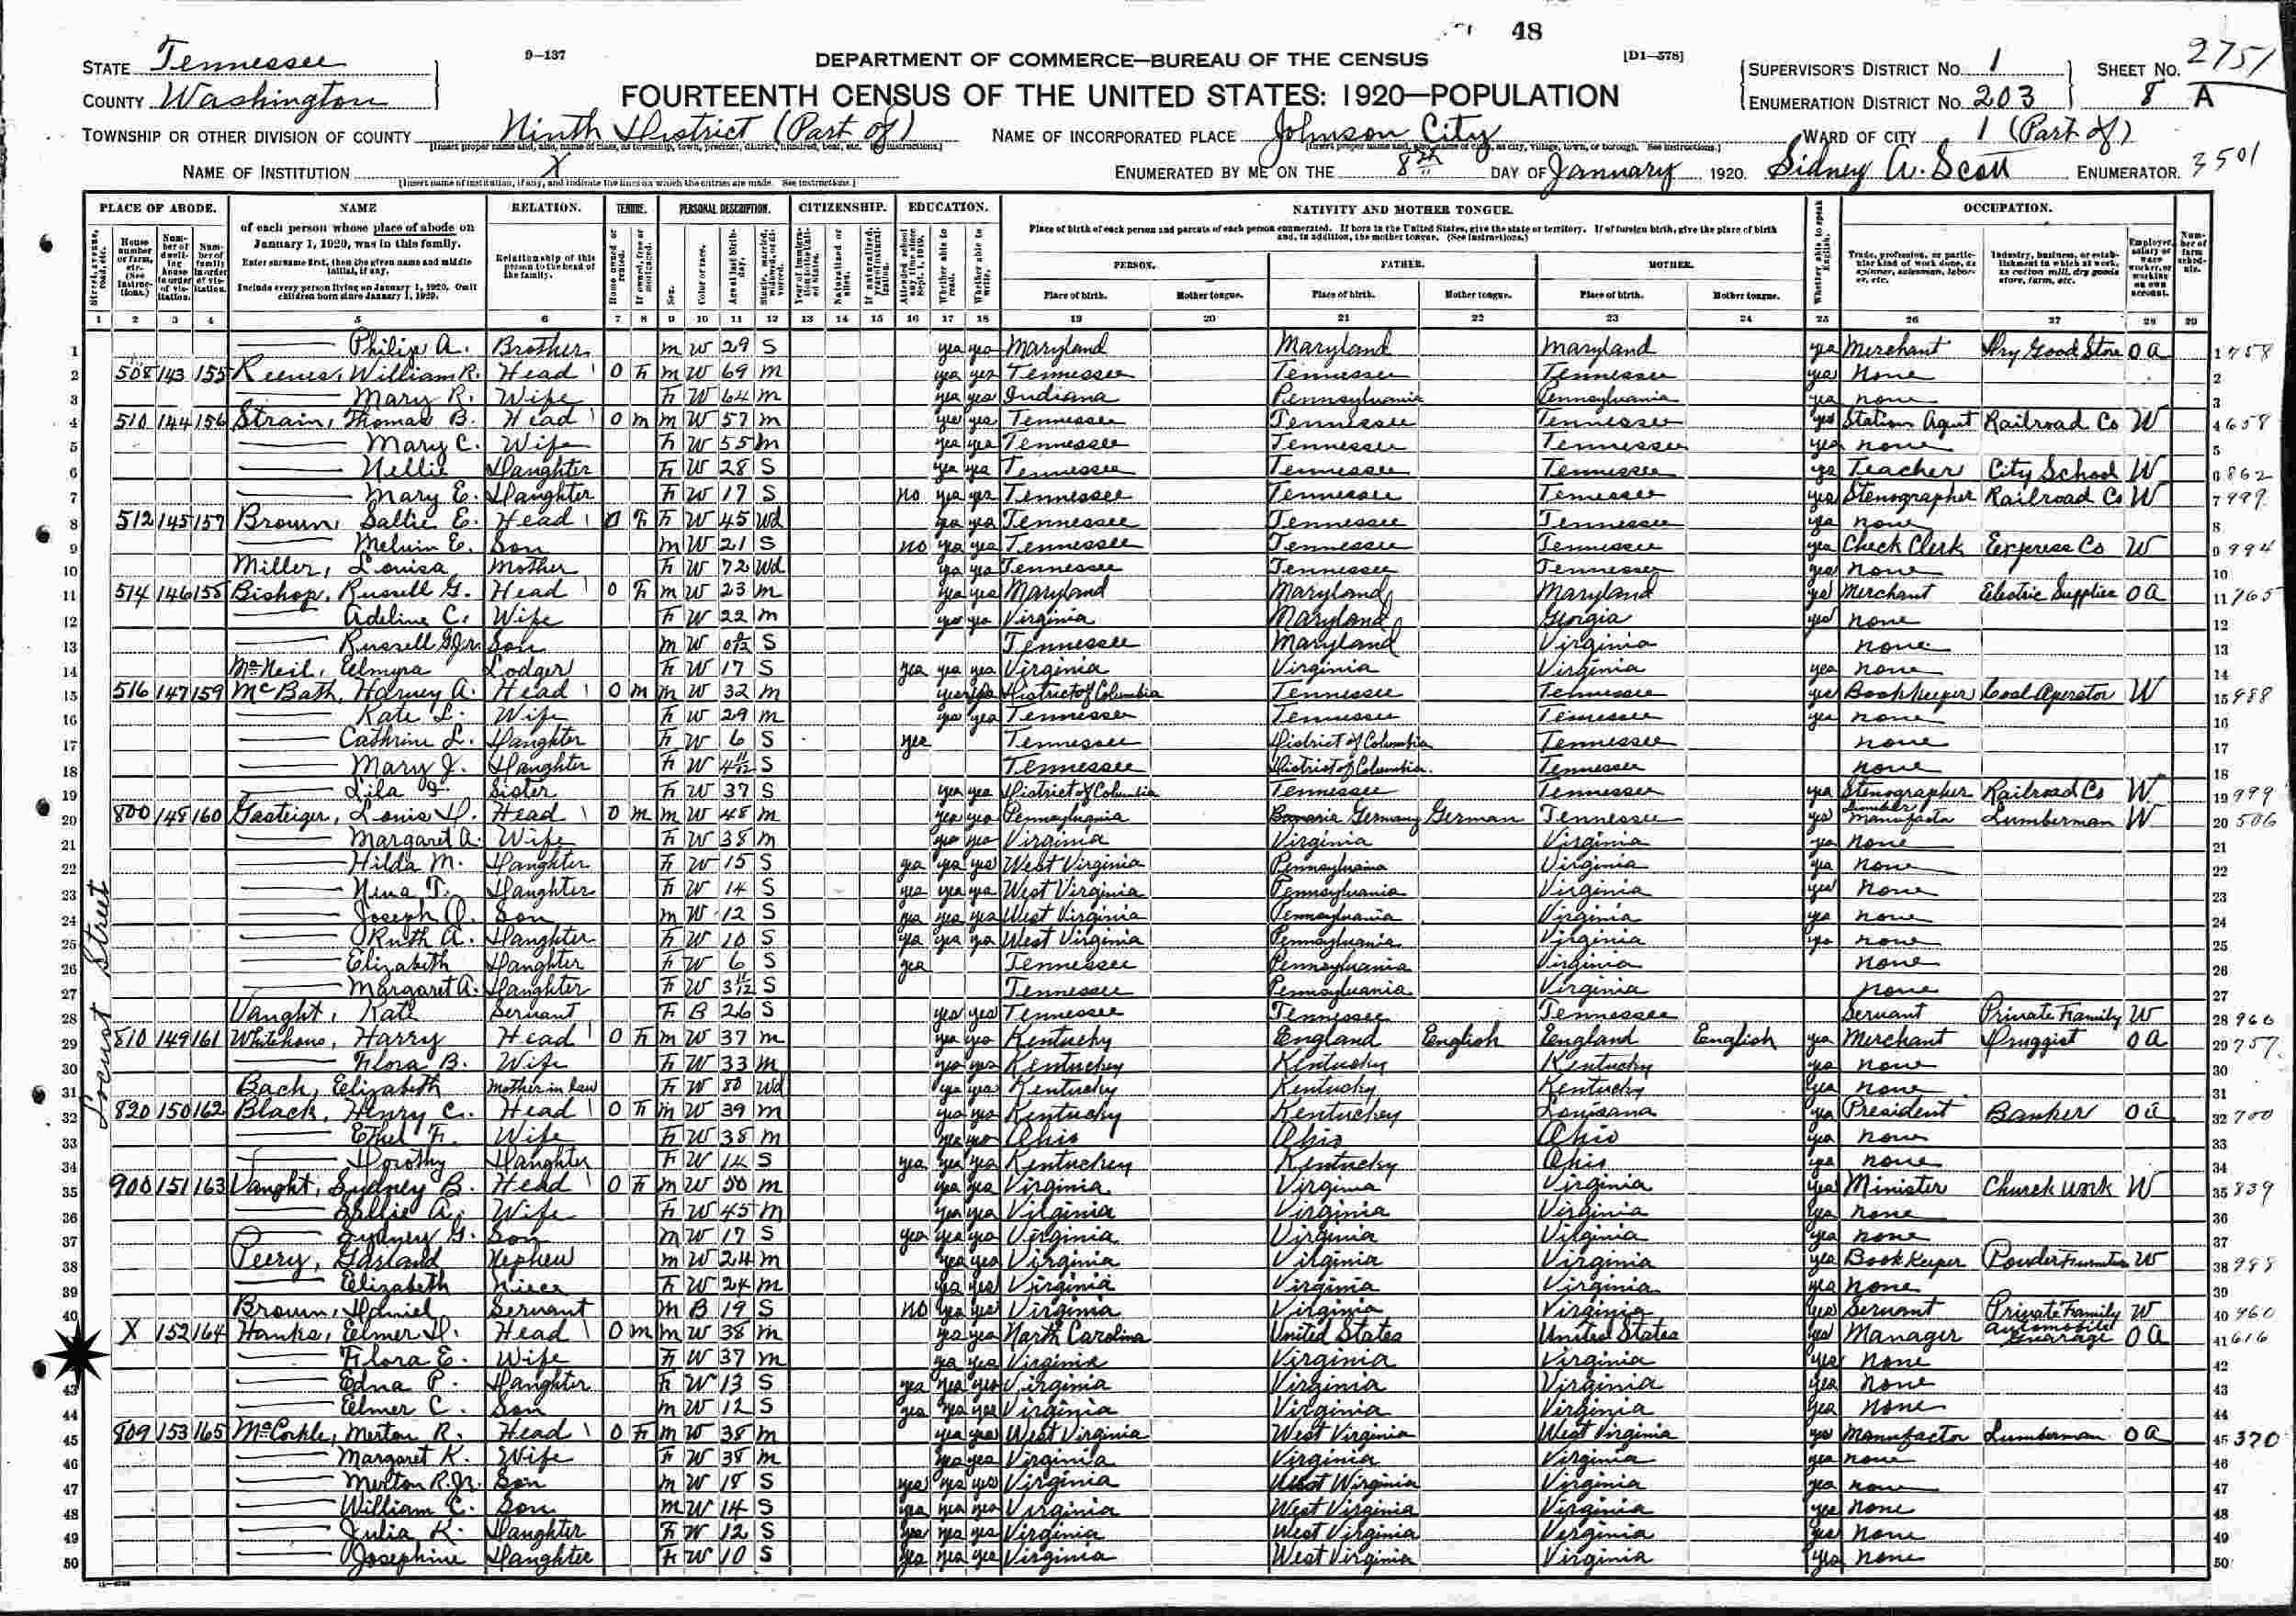 48
STATE Tennessee
9—137
DEPARTMENT OF COMMERCE—BUREAU OF THE CENSUS
[D1—578]
SUPERVISOR'S DISTRICT NO. 1
SHEET NO. 2751
COUNTY Washington
FOURTEENTH CENSUS OF THE UNITED STATES: 1920—POPULATION
ENUMERATION DISTRICT NO. 203
8 A
TOWNSHIP OR OTHER DIVISION OF COUNTY Ninth District (Part of)
NAME OF INCORPORATED PLACE Johnson City
WARD OF CITY 1 (Part of)
NAME OF INSTITUTION X
ENUMERATED BY ME ON THE 8th DAY OF January 1920. Sidney A. Scott ENUMERATOR. 3501
PLACE OF ABODE. NAME RELATION. TENURE. PERSONAL DESCRIPTION. CITIZENSHIP. EDUCATION. NATIVITY AND MOTHER TONGUE. OCCUPATION.
of each person whose place of abode on January 1, 1920, was in this family.
Enter surname first, then the given name and middle initial, if any.
Include every person living on January 1, 1920. Omit children born since January 1, 1920.
Relationship of this person to the head of the family.
Place of birth of each person and parents of each person enumerated. If born in the United States, give the state or territory. If of foreign birth, give the place of birth and, in addition, the mother tongue. (See Instructions.)
PERSON. FATHER. MOTHER.
Place of birth. Mother tongue. Place of birth. Mother tongue. Place of birth. Mother tongue.
1 2 3 4 5 6 7 8 9 10 11 12 13 14 15 16 17 18 19 20 21 22 23 24 25 26 27 28 29
Locust Street
1 — Philip A. Brother M W 29 S yes yes Maryland Maryland Maryland yes Merchant Dry Good Store OA 1 758
2 508 143 155 Reeves, William R. Head O F M W 69 M yes yes Tennessee Tennessee Tennessee yes None 2
3 — Mary R. Wife F W 64 M yes yes Indiana Pennsylvania Pennsylvania yes none 3
4 510 144 156 Strain, Thomas B. Head O M M W 57 M yes yes Tennessee Tennessee Tennessee yes Station Agent Railroad Co W 4 658
5 — Mary C. Wife F W 55 M yes yes Tennessee Tennessee Tennessee yes none 5
6 — Nellie Daughter F W 28 S yes yes Tennessee Tennessee Tennessee yes Teacher City School W 6 862
7 — Mary E. Daughter F W 17 S no yes yes Tennessee Tennessee Tennessee yes Stenographer Railroad Co W 7 999
8 512 145 157 Brown, Sallie E. Head O F F W 45 Wd yes yes Tennessee Tennessee Tennessee yes none 8
9 — Melvin E. Son M W 21 S no yes yes Tennessee Tennessee Tennessee yes Check Clerk Express Co W 9 994
10 Miller, Louisa Mother F W 72 Wd yes yes Tennessee Tennessee Tennessee yes none 10
11 514 146 158 Bishop, Russell G. Head O F M W 23 M yes yes Maryland Maryland Maryland yes Merchant Electric Supplies OA 11 765
12 — Adeline C. Wife F W 22 M yes yes Virginia Maryland Georgia yes none 12
13 — Russell G Jr. Son M W S Tennessee Maryland Virginia none 13
14 McNeil, Elmyra Lodger F W 17 S yes yes yes Virginia Virginia Virginia yes none 14
15 516 147 159 McBath, Harvey A. Head O M M W 32 M yes yes District of Columbia Tennessee Tennessee yes Bookkeeper Coal Operator W 15 988
16 — Kate L. Wife F W 29 M yes yes Tennessee Tennessee Tennessee yes none 16
17 — Cathrine L. Daughter F W 6 S yes Tennessee District of Columbia Tennessee none 17
18 — Mary J. Daughter F W S Tennessee District of Columbia Tennessee none 18
19 — Lila Sister F W 37 S yes yes District of Columbia Tennessee Tennessee yes Stenographer Railroad Co W 19 999
20 800 148 160 Gasteiger, Louis D. Head O M M W 48 M yes yes Pennsylvania Bavaria Germany German Tennessee yes Lumber Manufactr Lumberman W 20 506
21 — Margaret A. Wife F W 38 M yes yes Virginia Virginia Virginia yes none 21
22 — Hilda M. Daughter F W 15 S yes yes yes West Virginia Pennsylvania Virginia yes none 22
23 — Nena T. Daughter F W 14 S yes yes yes West Virginia Pennsylvania Virginia yes none 23
24 — Joseph O. Son M W 12 S yes yes yes West Virginia Pennsylvania Virginia yes none 24
25 — Ruth A. Daughter F W 10 S yes yes yes West Virginia Pennsylvania Virginia yes none 25
26 — Elizabeth Daughter F W 6 S yes Tennessee Pennsylvania Virginia none 26
27 — Margaret A. Daughter F W 3 11/12 S Tennessee Pennsylvania Virginia none 27
28 Vaught, Kate Servant F B 26 S yes yes Tennessee Tennessee Tennessee Servant Private Family W 28 960
29 810 149 161 Whitehouse, Harry Head O F M W 37 M yes yes Kentucky England English England English yes Merchant Druggist OA 29 757
30 — Flora B. Wife F W 33 M yes yes Kentuckey Kentucky Kentucky yes none 30
31 Bach, Elizabeth Mother in law F W 80 Wd yes yes Kentucky Kentucky Kentucky yes none 31
32 820 150 162 Black, Henry C. Head O F M W 39 M yes yes Kentucky Kentuckey Louisana yes President Banker OA 32 700
33 — Ethel F. Wife F W 38 M yes yes Ohio Ohio Ohio yes none 33
34 — Dorothy Daughter F W 14 S yes yes yes Kentuckey Kentucky Ohio yes none 34
35 900 151 163 Vaught, Sydney B. Head O F M W 50 M yes yes Virginia Virginia Virginia yes Minister Church work W 35 839
36 — Sallie A. Wife F W 45 M yes yes Virginia Virginia Virginia yes none 36
37 — Sydney G. Son M W 17 S yes yes yes Virginia Virginia Virginia yes none 37
38 Peery, Garland Nephew M W 24 M yes yes Virginia Virginia Virginia yes Book Keeper Powder W 38 988
39 — Elizabeth Niece F W 24 M yes yes Virginia Virginia Virginia yes none 39
40 Brown, Daniel Servant M B 19 S no yes yes Virginia Virginia Virginia yes Servant Private Family W 40 960
41 X 152 164 Hanks, Elmer D. Head O M M W 38 M yes yes North Carolina United States United States yes Manager Automobile Guarage OA 41 616
42 — Flora E. Wife F W 37 M yes yes Virginia Virginia Virginia yes none 42
43 — Edna P. Daughter F W 13 S yes yes yes Virginia Virginia Virginia yes none 43
44 — Elmer C. Son M W 12 S yes yes yes Virginia Virginia Virginia yes none 44
45 809 153 165 McCorkle, Merton R. Head O F M W 38 M yes yes West Virginia West Virginia West Virginia yes Manufactor Lumberman OA 45 370
46 — Margaret K. Wife F W 38 M yes yes Virginia Virginia Virginia yes none 46
47 — Merton R. Jr. Son M W 18 S yes yes yes Virginia West Virginia Virginia yes none 47
48 — William C. Son M W 14 S yes yes yes Virginia West Virginia Virginia yes none 48
49 — Julia K. Daughter F W 12 S yes yes yes Virginia West Virginia Virginia yes none 49
50 — Josephine Daughter F W 10 S yes yes yes Virginia West Virginia Virginia yes none 50